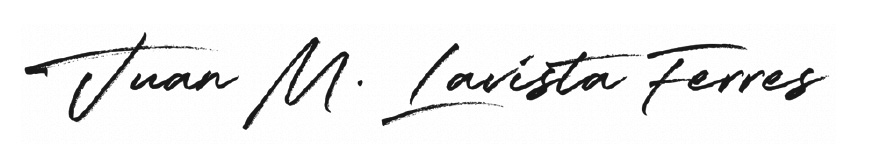 Juan M. Lavista Ferres